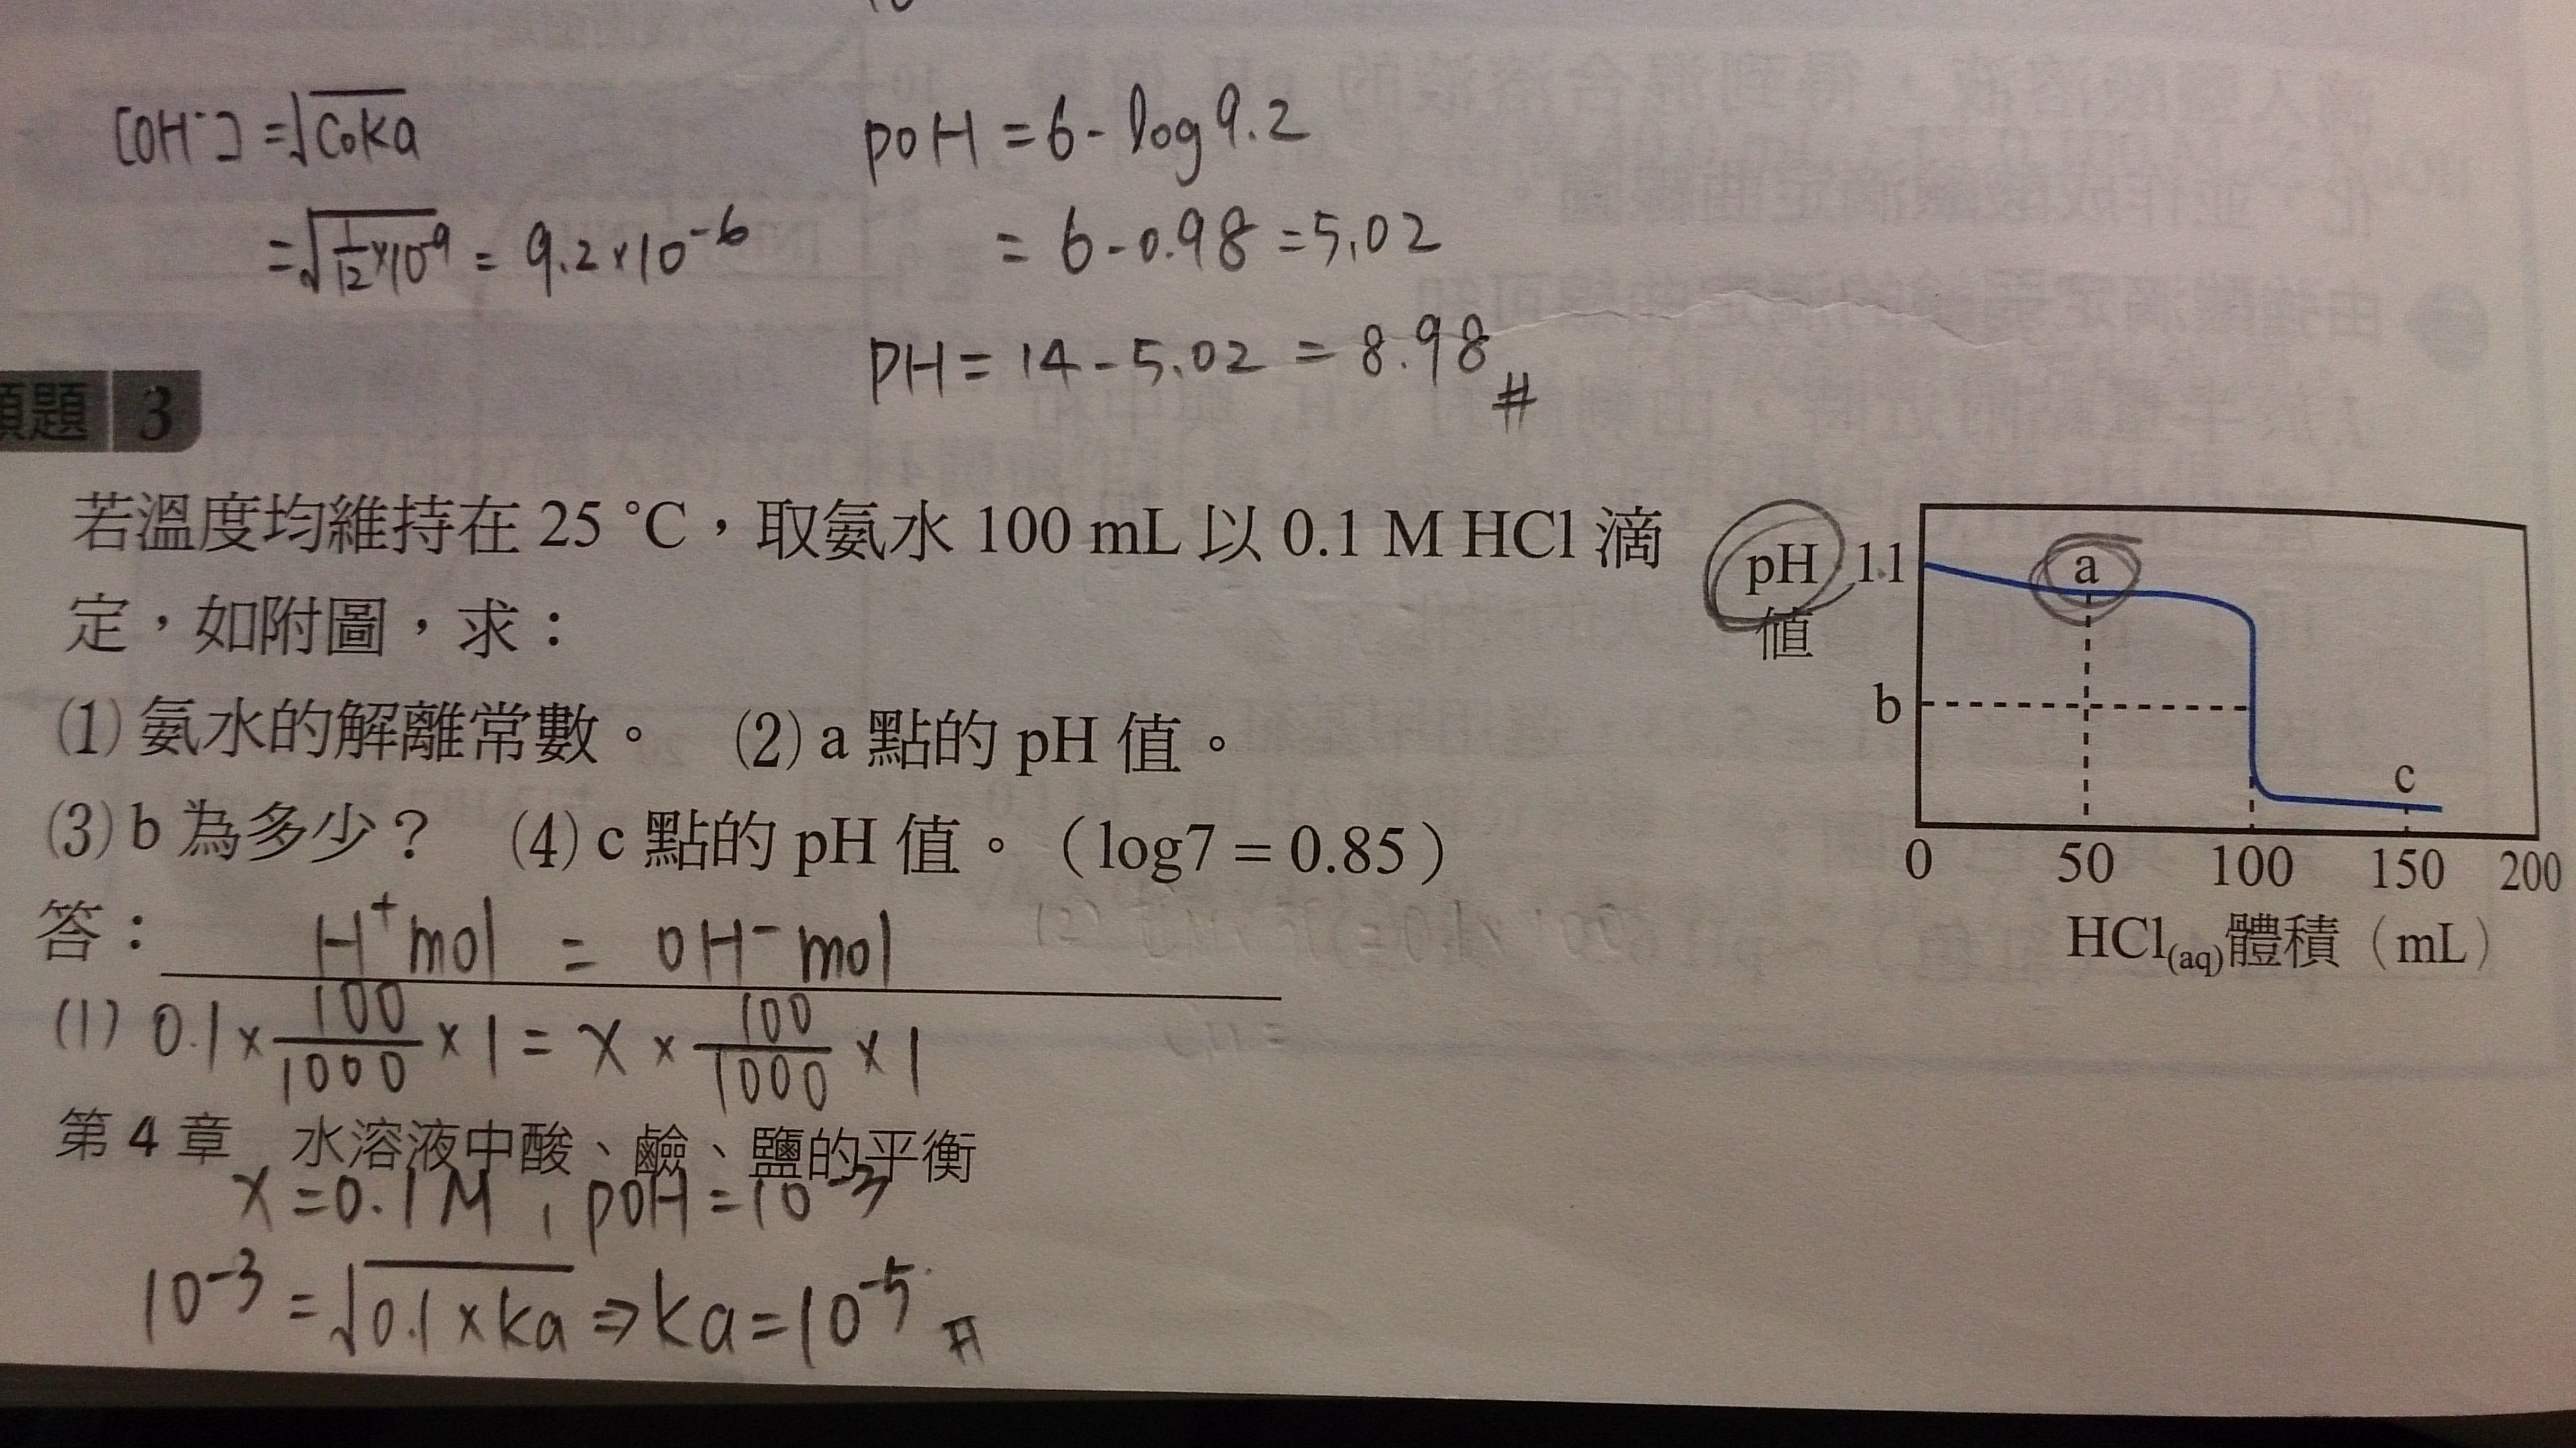 [OH⁻] = √C₀Ka
= √1/12×10⁻⁹ = 9.2×10⁻⁶
pOH = 6 - log9.2
= 6-0.98 = 5.02
PH = 14-5.02 = 8.98 #
類題 3
若溫度均維持在 25 °C,取氨水 100 mL 以 0.1 M HCl 滴
定,如附圖,求:
(1) 氨水的解離常數。 (2) a 點的 pH 值。
(3) b 為多少? (4) c 點的 pH 值。(log7 = 0.85)
答:
H⁺mol = OH⁻mol
(1) 0.1 × 100/1000 × 1 = x × 100/1000 × 1
第 4 章 水溶液中酸、鹼、鹽的平衡
x = 0.1M , pOH = 10⁻³
10⁻³ = √0.1×Ka ⇒ Ka = 10⁻⁵ #
pH 值
11
a
b
c
0 50 100 150 200
HCl(aq)體積(mL)